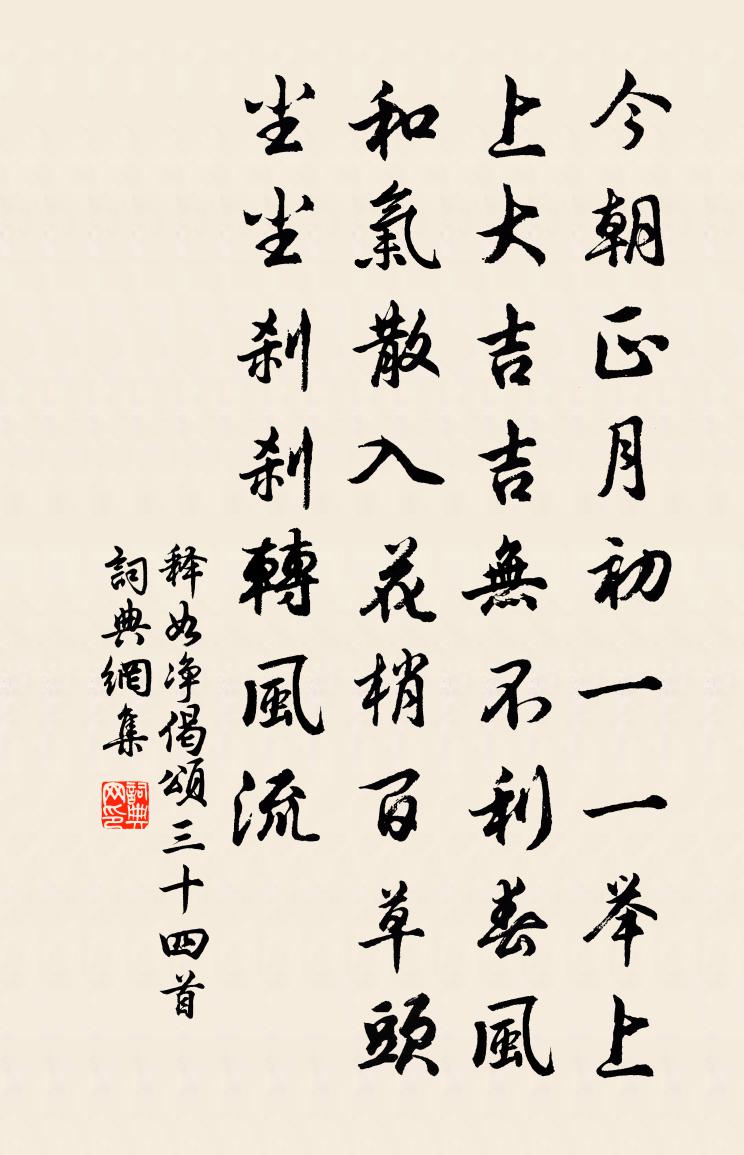 今朝正月初一一举上
上大吉吉無不利春風
和氣散入花梢百草頭
尘尘刹刹轉風流
释如净偈頌三十四首
詞典網集
詞典网印